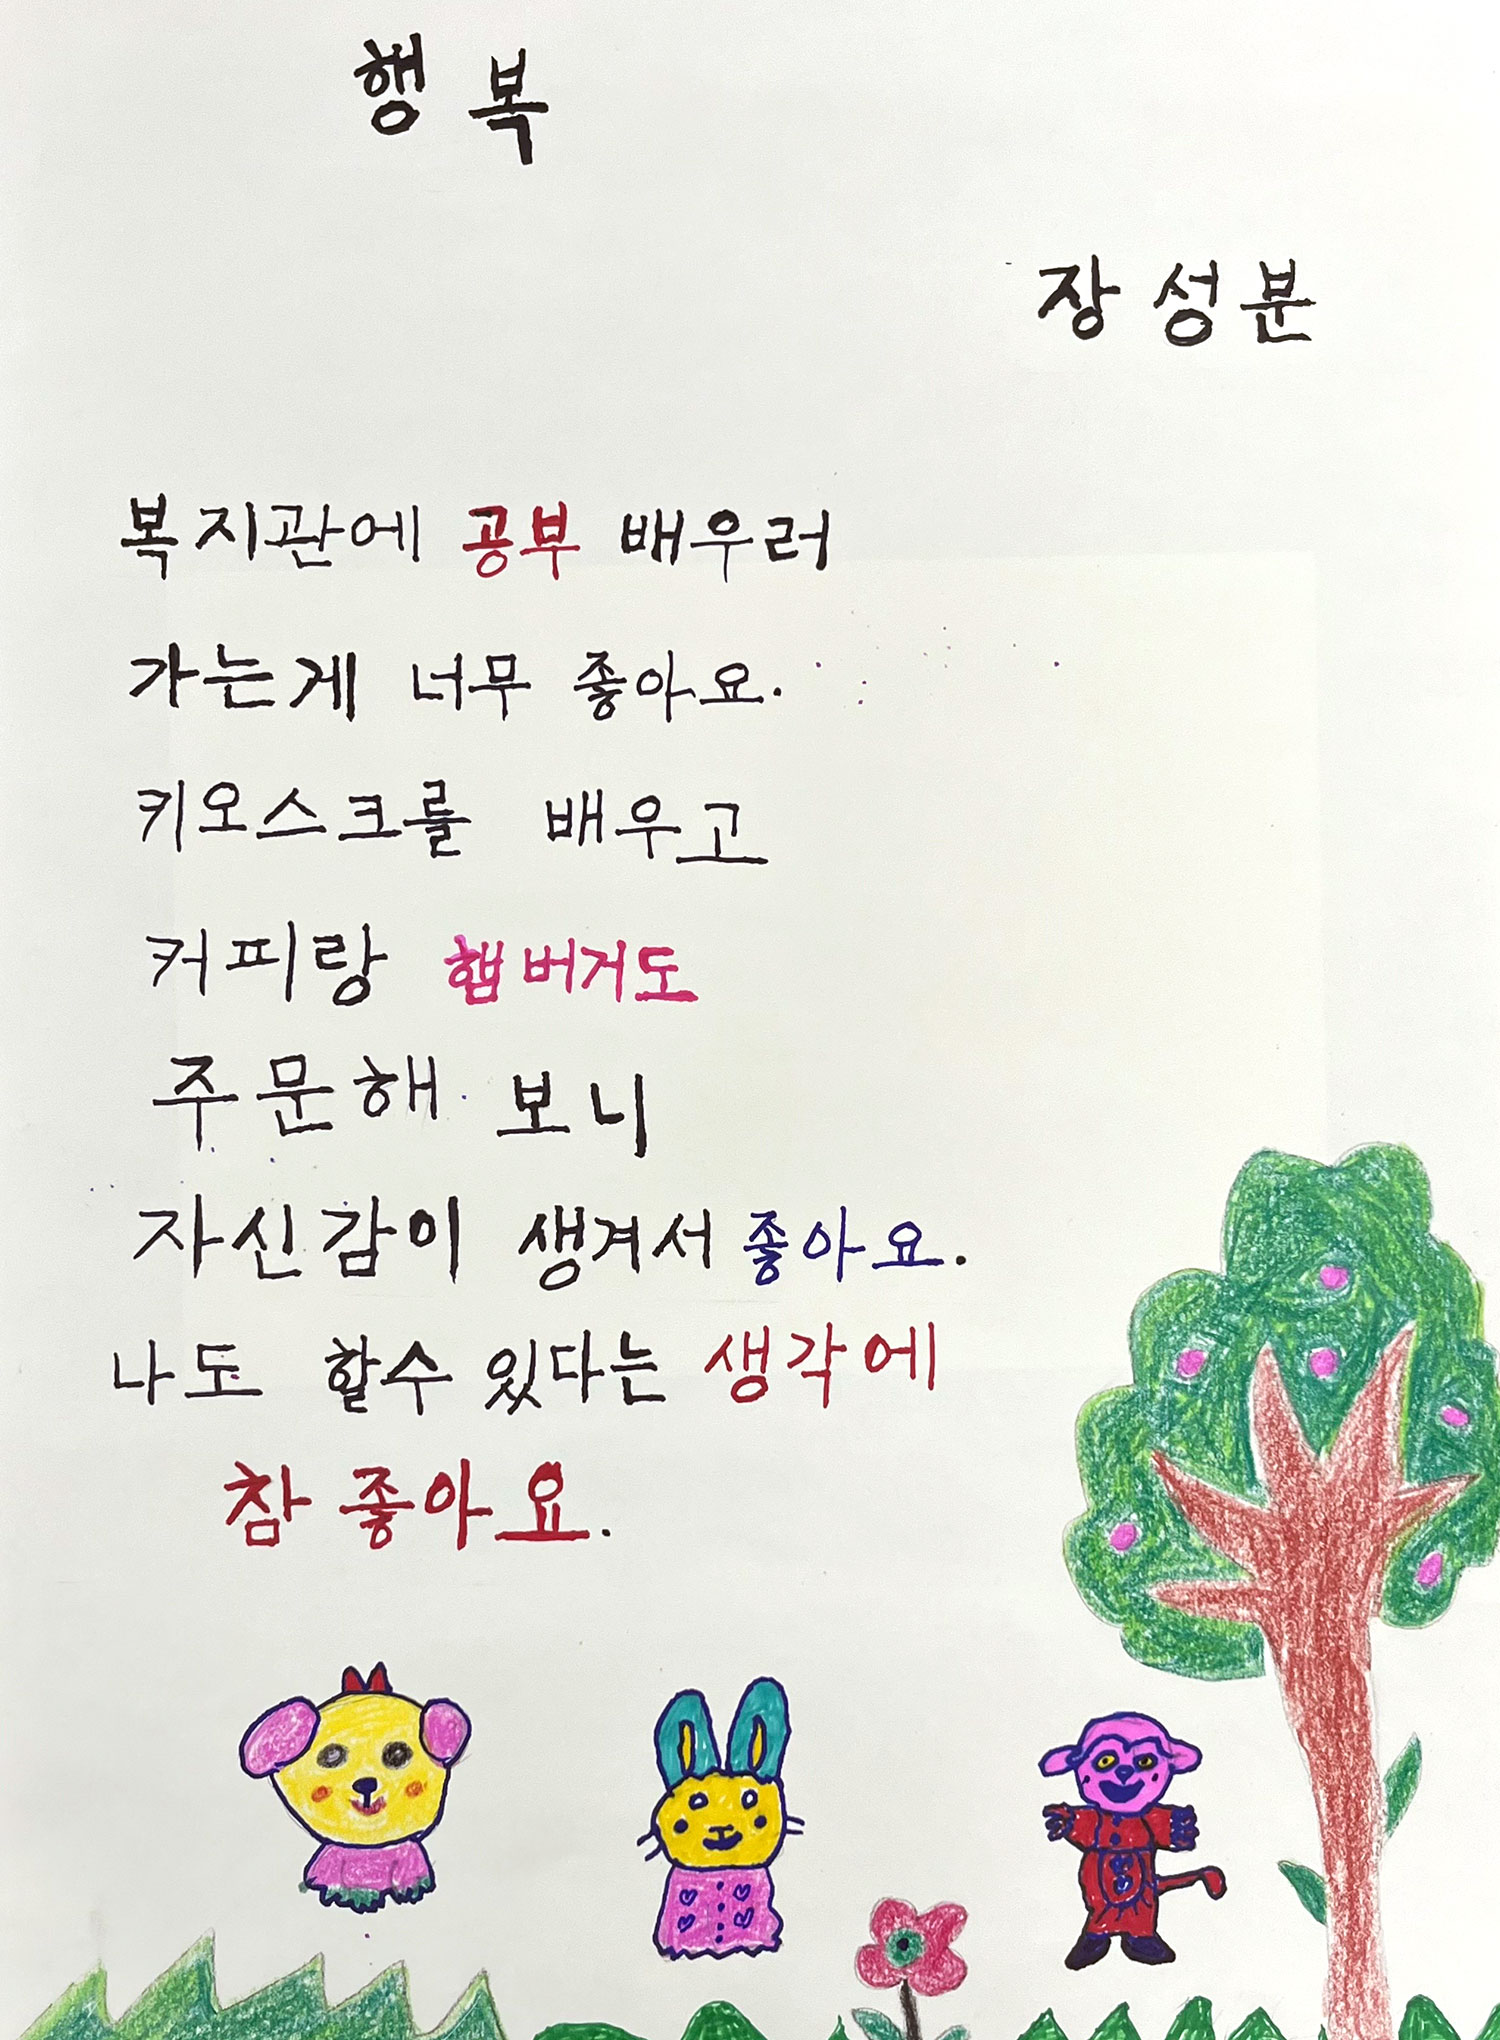 행복
장성분
복지관에 공부 배우러
가는게 너무 좋아요.
키오스크를 배우고
커피랑 햄버거도
주문해 보니
자신감이 생겨서 좋아요.
나도 할수 있다는 생각에
참 좋아요.